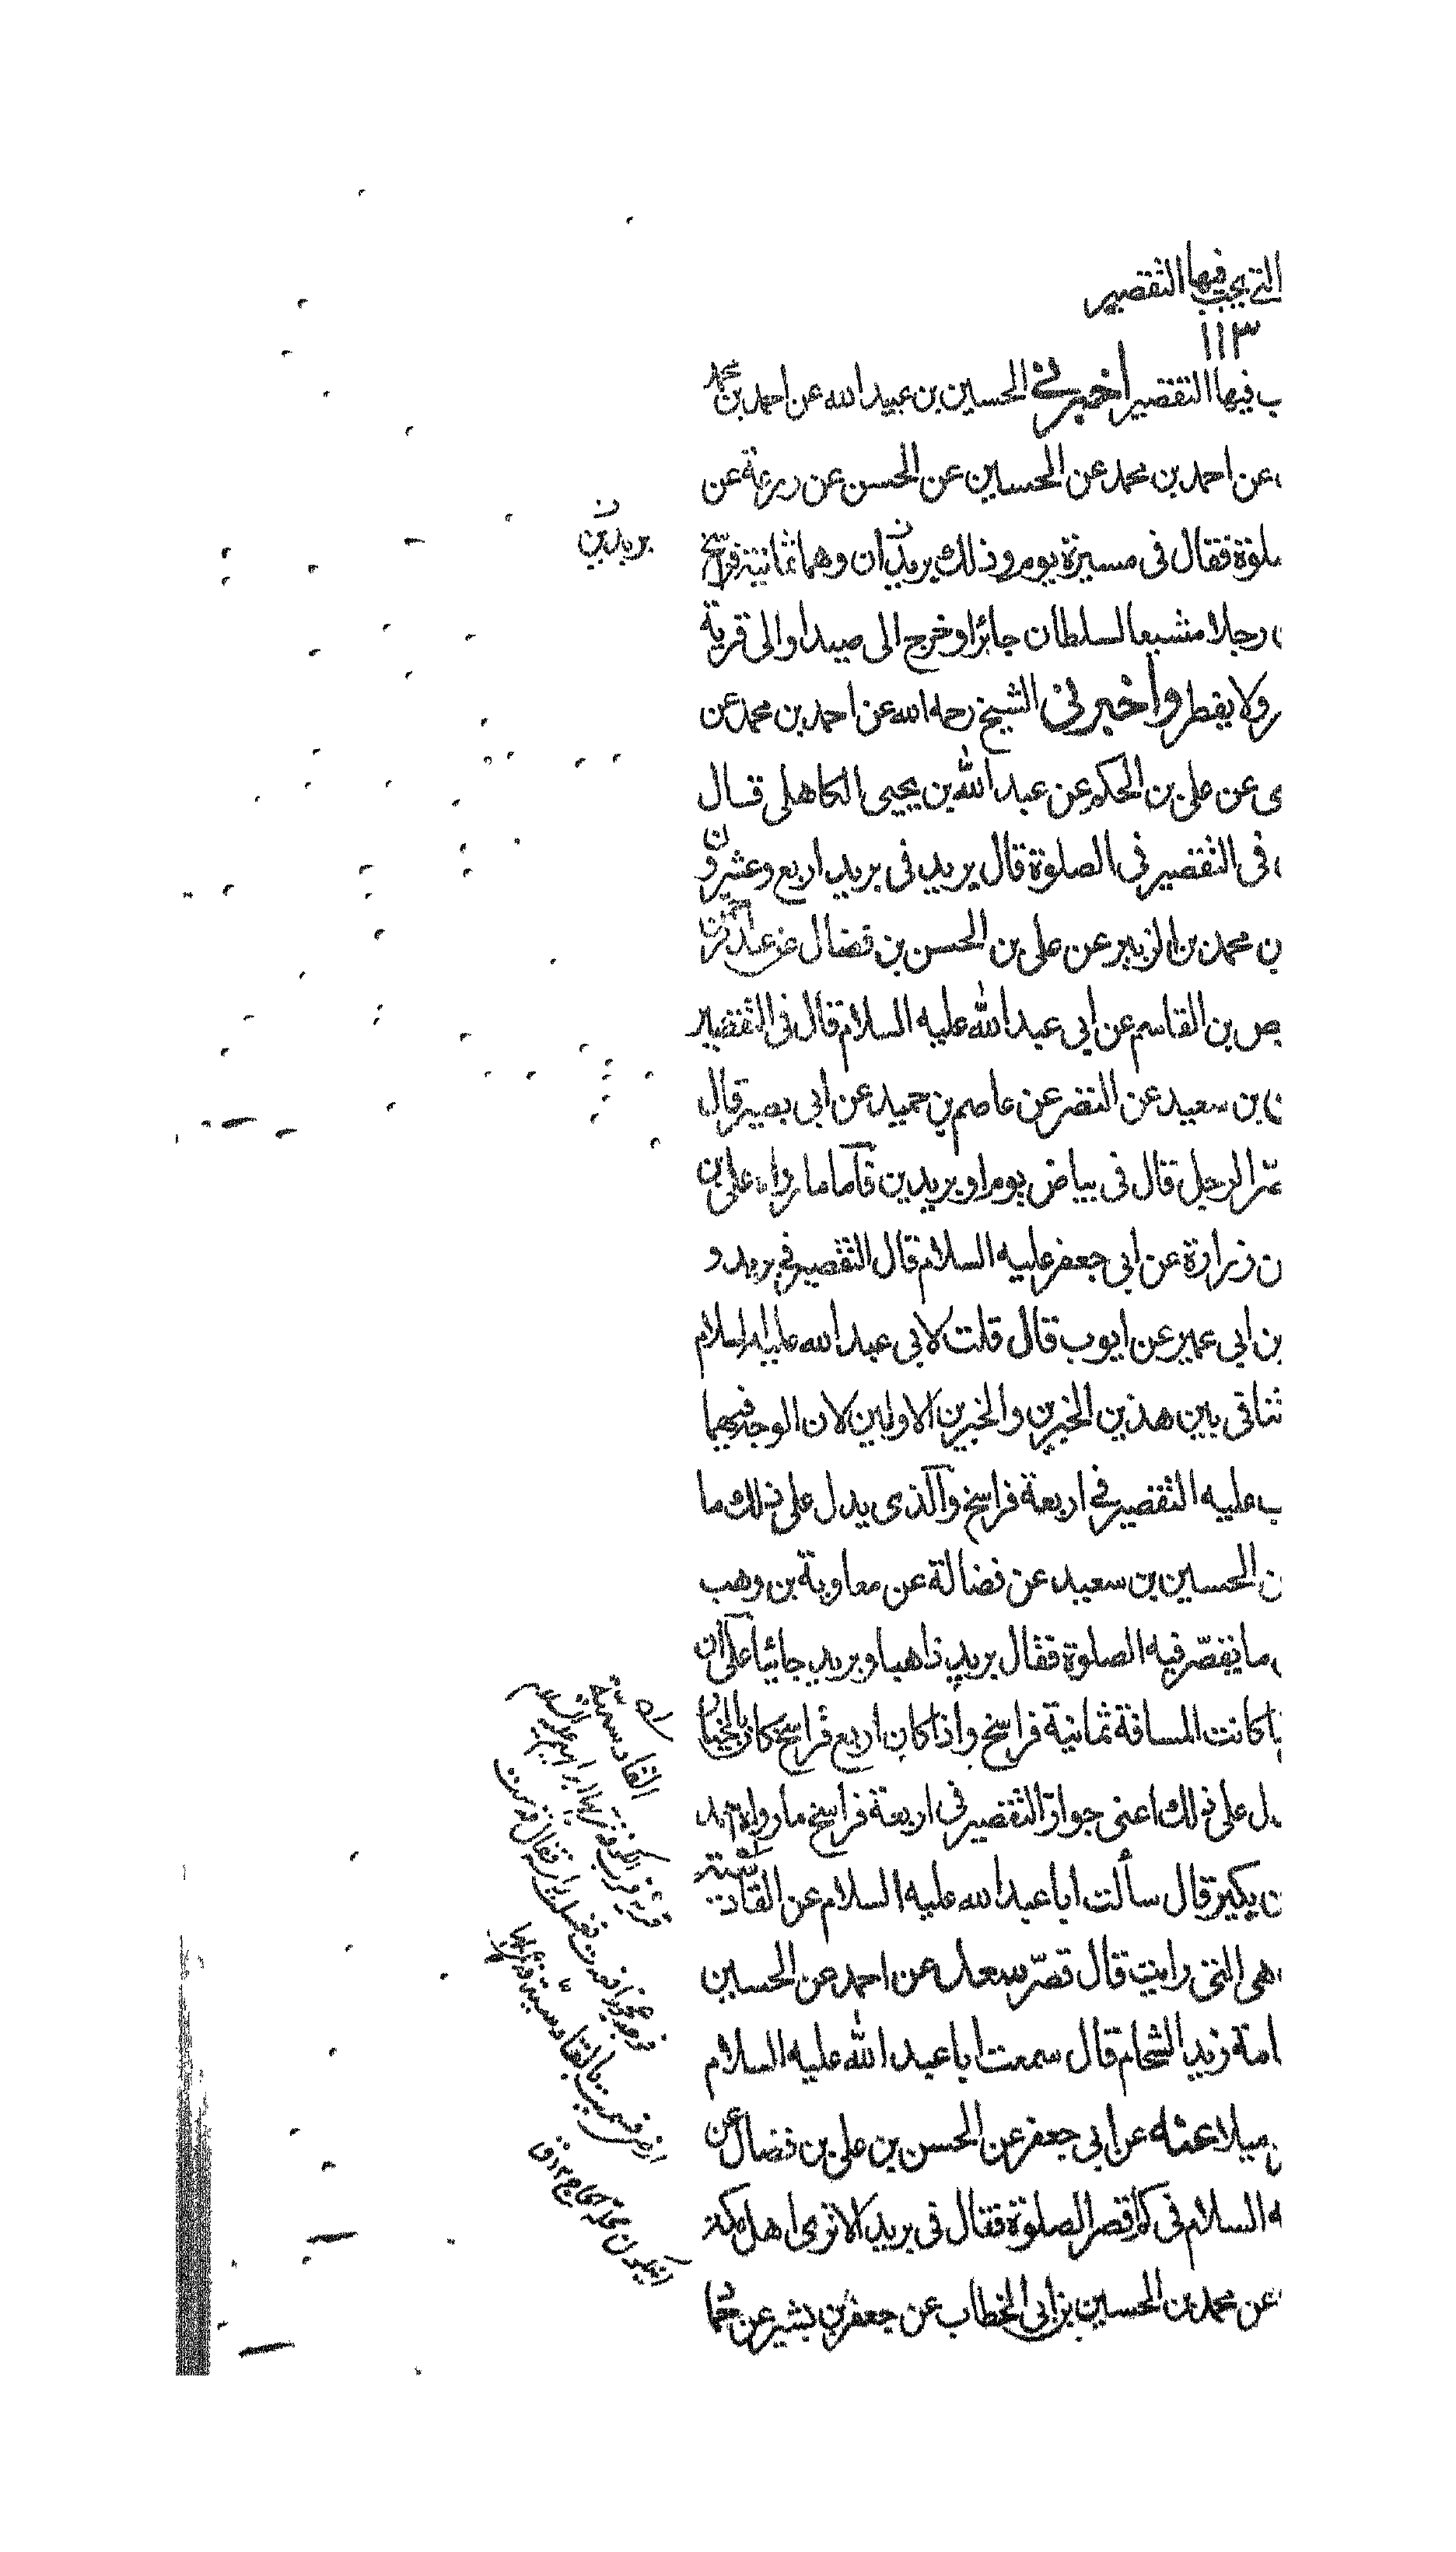 التي يجب فيها التقصير
١١٣
ب فيها التقصير اخبرني الحسين بن عبيد الله عن احمد بن محمد
عن احمد بن محمد عن الحسين عن الحسن عن زرعة عن
صلوة فقال في مسيرة يوم وذلك بريدان وهما ثمانية فراسخ
رجلا مشيعا لسلطان جائر او خرج الى صيد او الى قرية
ر ولا يفطر واخبرني الشيخ رحمه الله عن احمد بن محمد عن
ى عن علي بن الحكم عن عبد الله بن يحيى الكاهلي قال
في التقصير في الصلوة قال بريد في بريد اربع وعشرون
ن محمد بن الزبير عن علي بن الحسن بن فضال عن
يص بن القاسم عن ابي عبد الله عليه السلام قال في التقصير
ن بن سعيد عن النضر عن عاصم بن حميد عن ابي بصير قال
صّر الرجل قال في بياض يوم او بريدين فآما ما رواه علي بن
ن زرارة عن ابي جعفر عليه السلام قال التقصير في بريد و
بن ابي عمير عن ايوب قال قلت لابي عبد الله عليه السلام
تنافي بين هذين الخبرين والخبرين الاولين لان الوجه فيهما
ب عليه التقصير في اربعة فراسخ وآلذي يدل على ذلك ما
ن الحسين بن سعيد عن فضالة عن معاوية بن وهب
ما يقصّر فيه الصلوة فقال بريد ذاهبا وبريد جائيا على ان
كانت المسافة ثمانية فراسخ واذا كان اربع فراسخ كان بالخيار
يدل على ذلك اعني جواز التقصير في اربعة فراسخ ما رواه
ن بكير قال سألت ابا عبد الله عليه السلام عن القادسية
هي التي رايت قال قصّر سعد عن احمد عن الحسين
امة زيد الشحام قال سمعت ابا عبد الله عليه السلام
ميلا عنه عن ابي جعفر عن الحسن بن علي بن فضال عن
ه السلام في كم اقصر الصلوة فقال في بريد الا ترى اهل مكة
عن محمد بن الحسين بن ابي الخطاب عن جعفر بن بشير عن حماد
بريدين ن
القادسية